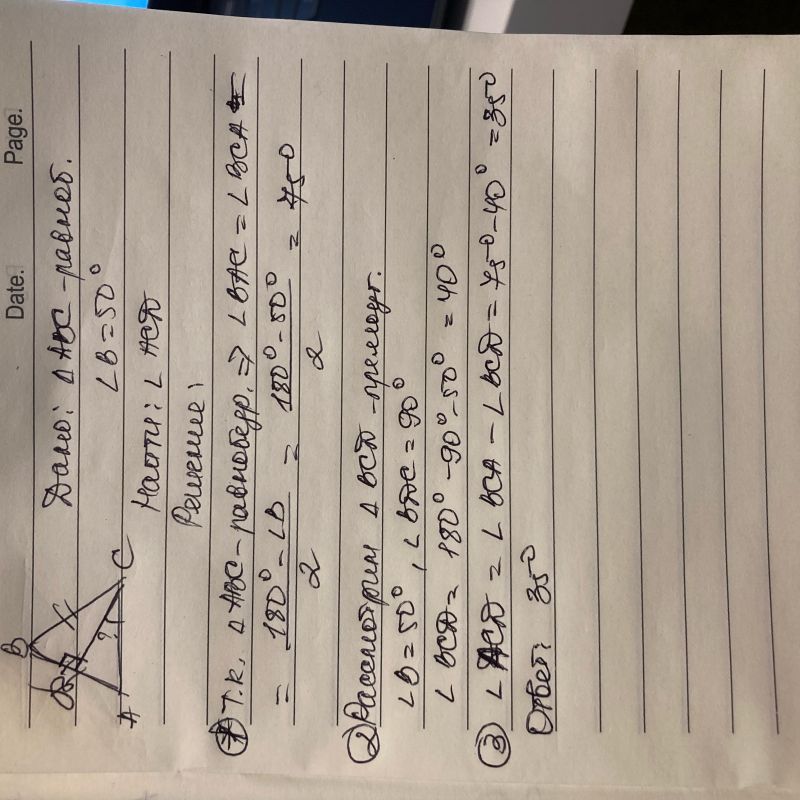 Date. Page.
Дано: △ABC -равноб.
∠B=50°
Найти: ∠ACD
Решение:
B
D
A ? C
① Т.к. △ABC-равнобедр. => ∠BAC = ∠BCA =
= 180°-∠B / 2 = 180°-50° / 2 = 75°
② Рассмотрим △BCD -прямоуг.
∠B=50°, ∠BDC=90°
∠BCD= 180°-90°-50°=40°
③ ∠ACD = ∠BCA - ∠BCD = 75°-40°=35°
Ответ: 35°